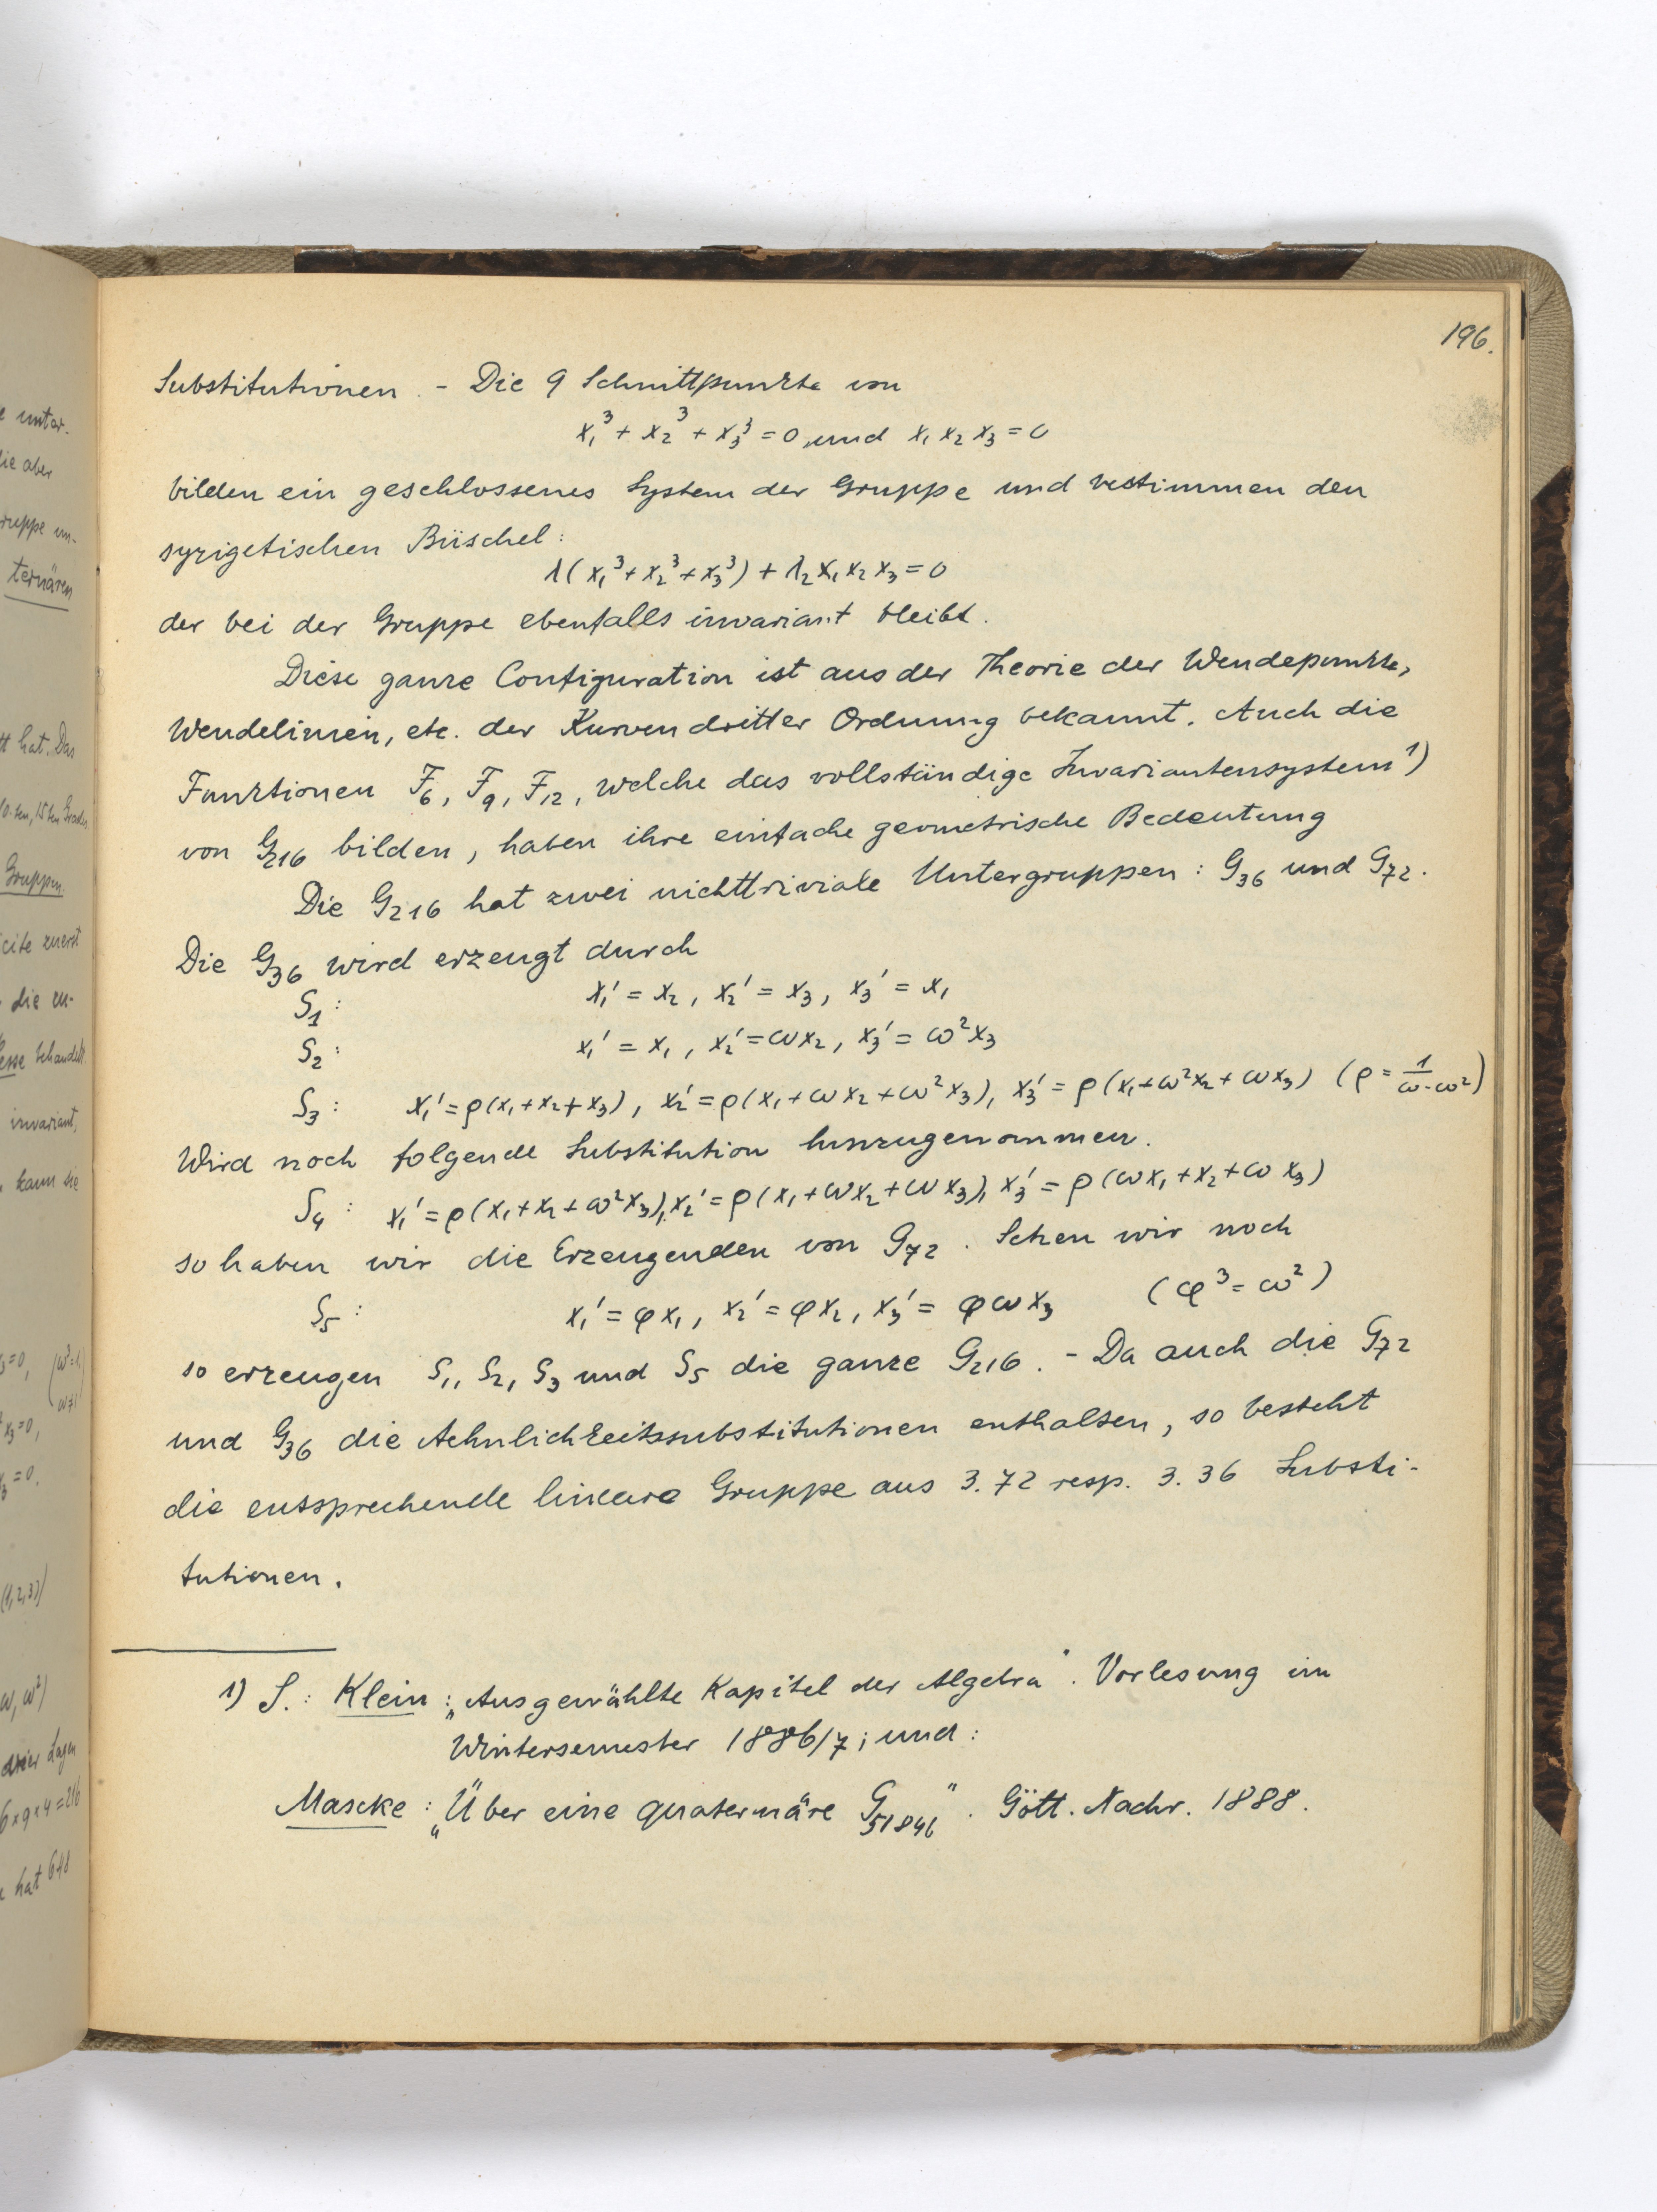 196.
Substitutionen. - Die 9 Schnittpunkte von
x₁³ + x₂³ + x₃³ = 0 und x₁ x₂ x₃ = 0
bilden ein geschlossenes System der Gruppe und bestimmen den
syzigetischen Büschel:
λ(x₁³ + x₂³ + x₃³) + λ₂ x₁ x₂ x₃ = 0
der bei der Gruppe ebenfalls invariant bleibt.
Diese ganze Configuration ist aus der Theorie der Wendepunkte,
Wendelinien, etc. der Kurven dritter Ordnung bekannt. Auch die
Funktionen F₆, F₉, F₁₂, welche das vollständige Invariantensystem ¹)
von G₂₁₆ bilden, haben ihre einfache geometrische Bedeutung
Die G₂₁₆ hat zwei nichttriviale Untergruppen: G₃₆ und G₇₂.
Die G₃₆ wird erzeugt durch
S₁: x₁' = x₂, x₂' = x₃, x₃' = x₁
S₂: x₁' = x₁, x₂' = ωx₂, x₃' = ω²x₃
S₃: x₁' = ρ(x₁+x₂+x₃), x₂' = ρ(x₁+ωx₂+ω²x₃), x₃' = ρ(x₁+ω²x₂+ωx₃) (ρ = 1/(ω-ω²))
Wird noch folgende Substitution hinzugenommen.
S₄: x₁' = ρ(x₁+x₂+ω²x₃), x₂' = ρ(x₁+ωx₂+ωx₃), x₃' = ρ(ωx₁+x₂+ωx₃)
so haben wir die Erzeugenden von G₇₂. Setzen wir noch
S₅: x₁' = φx₁, x₂' = φx₂, x₃' = φωx₃ (φ³ = ω²)
so erzeugen S₁, S₂, S₃ und S₅ die ganze G₂₁₆. - Da auch die G₇₂
und G₃₆ die Aehnlichkeitssubstitutionen enthalten, so besteht
die entsprechende lineare Gruppe aus 3. 72 resp. 3. 36 Substi-
tutionen.
1) S.: Klein: „Ausgewählte Kapitel der Algebra". Vorlesung im
Wintersemester 1886/7; und:
Mascke: „Über eine quaternäre G₅₁₈₄₆". Gött. Nachr. 1888.